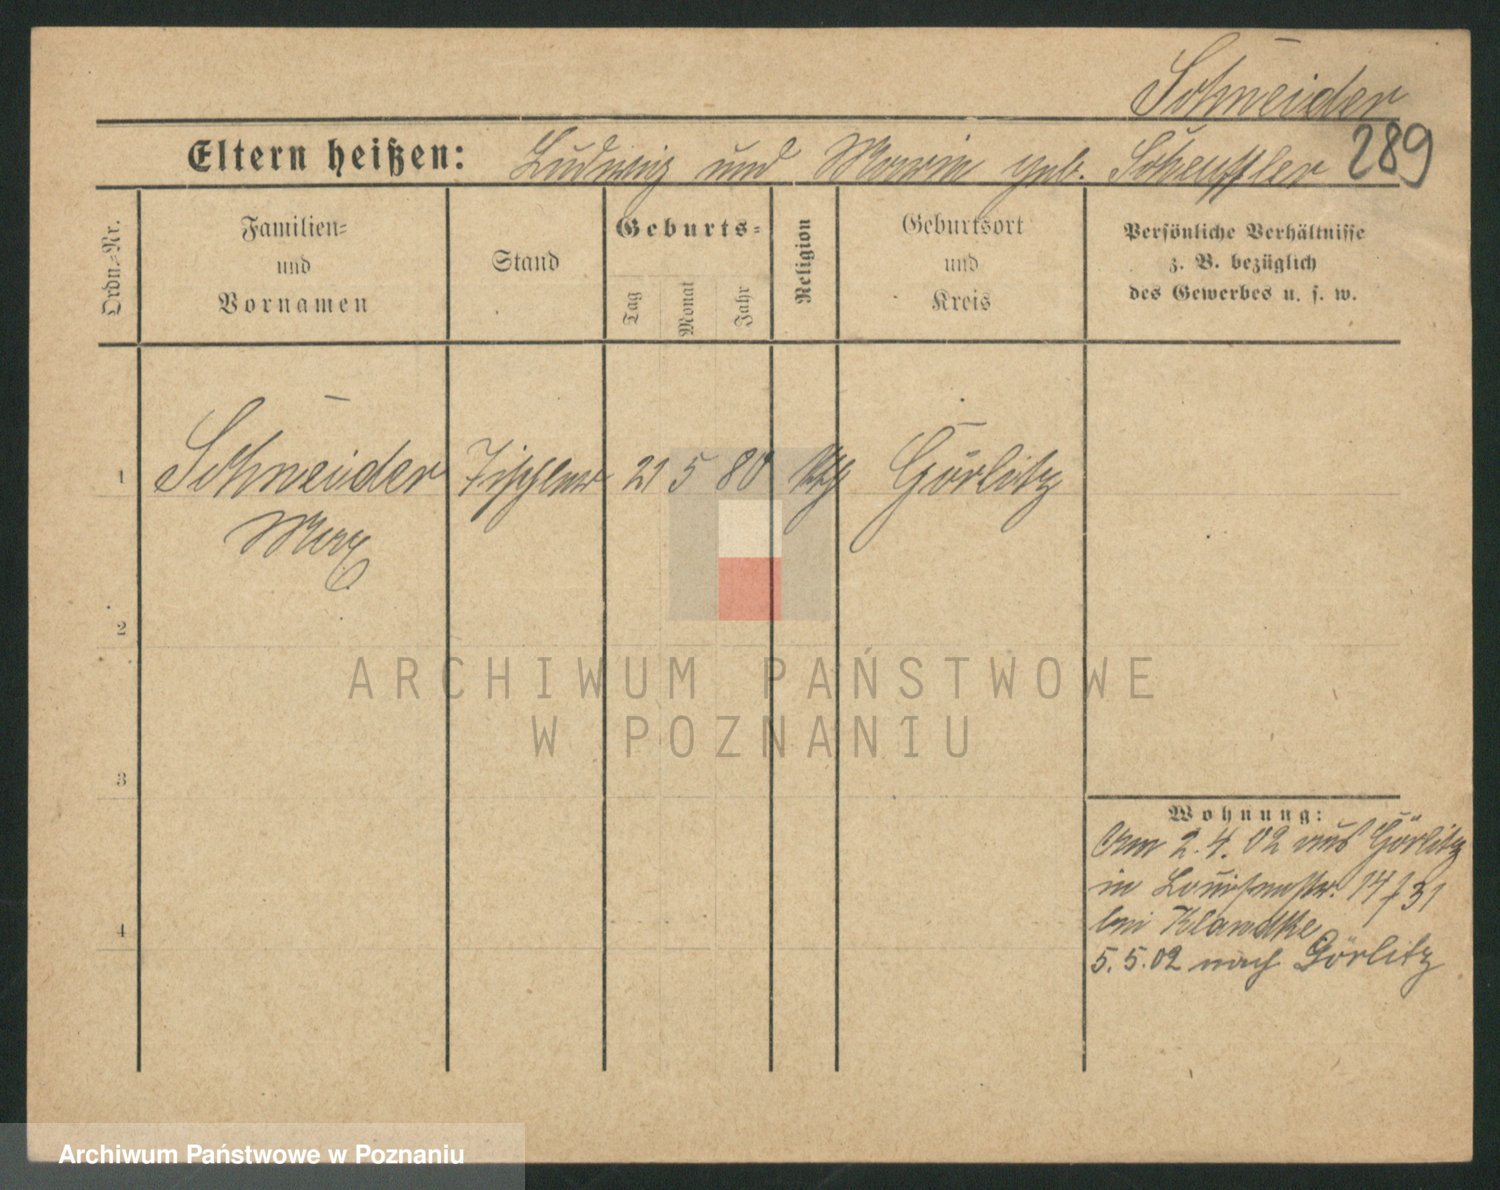 Schneider
289
Eltern heißen: Ludwig und Marie geb. Scheffler
Ordn.-Nr.
Familien-
und
Vornamen
Stand
Geburts-
Tag
Monat
Jahr
Religion
Geburtsort
und
Kreis
Persönliche Verhältnisse
z. B. bezüglich
des Gewerbes u. s. w.
1
Schneider Tischler 21 5 80 Görlitz
Max
2
3
4
Wohnung:
Am 2.4.02 aus Görlitz
in Louisenstr. 14 31
bei
5.5.02 nach Görlitz
ARCHIWUM PAŃSTWOWE
W POZNANIU
Archiwum Państwowe w Poznaniu